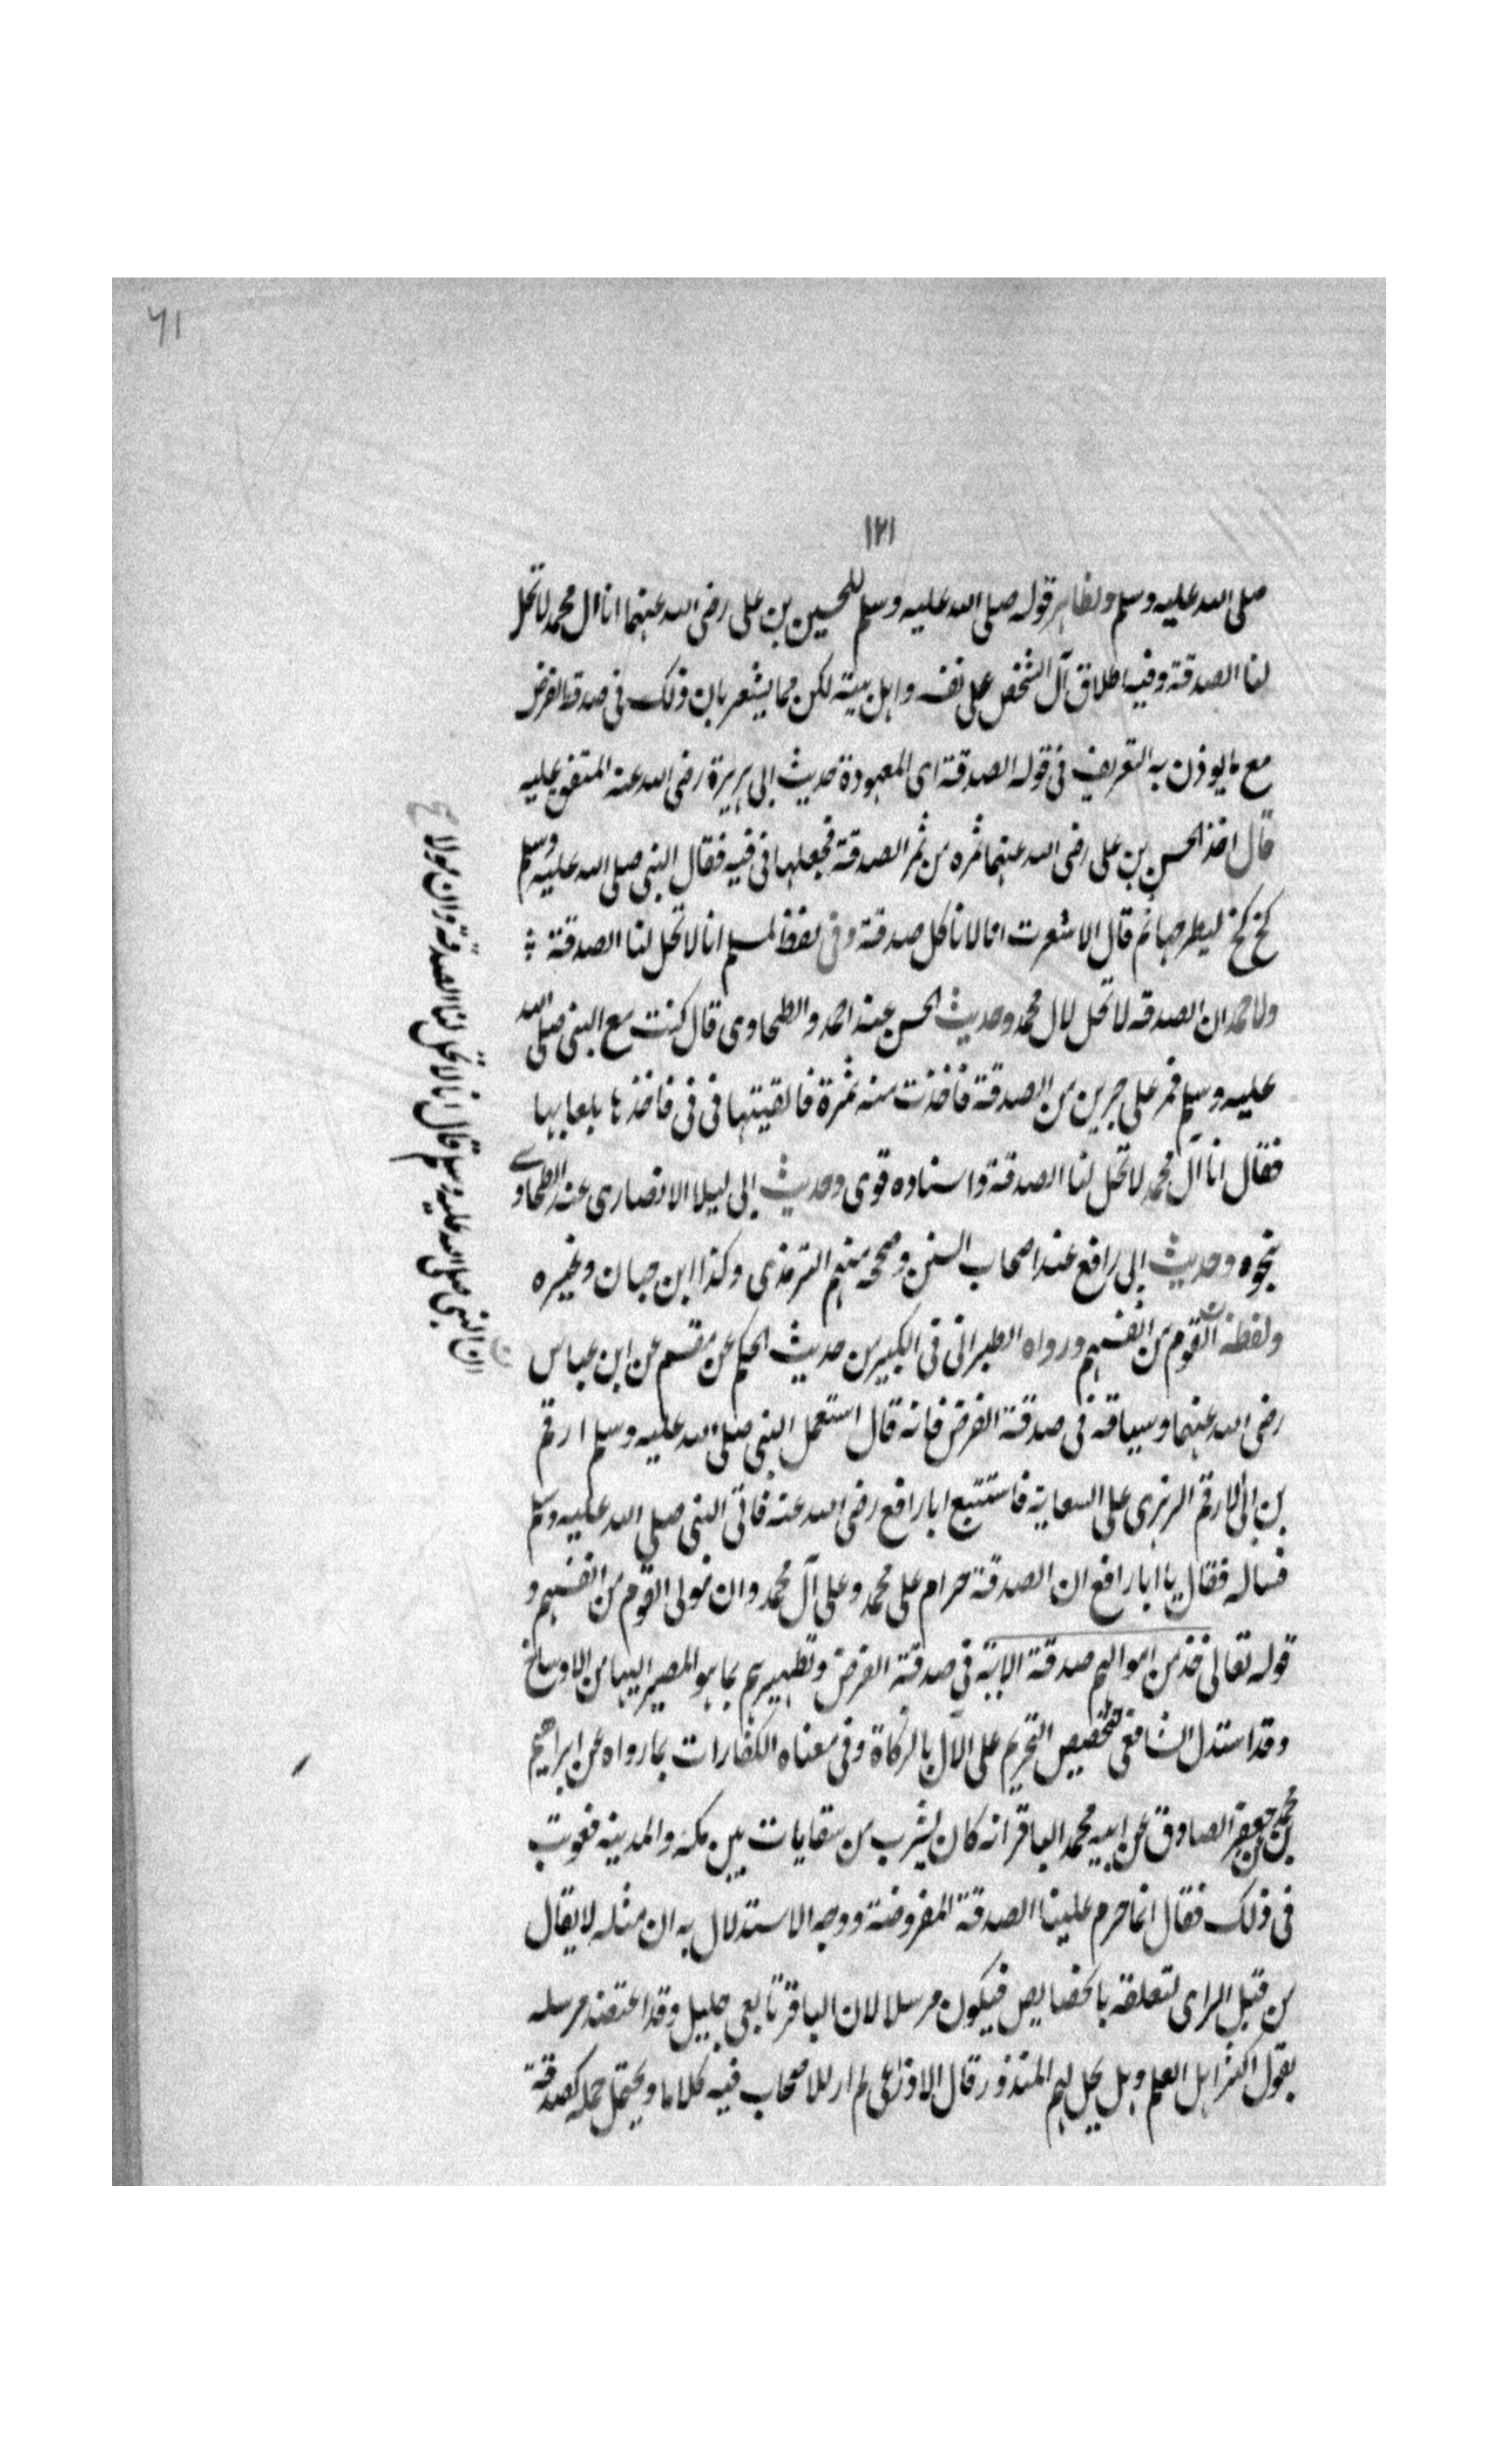 ٦١
١٢١
صلى الله عليه وسلم ولظاهر قوله صلى الله عليه وسلم للحسين بن على رضى الله عنهما انا ال محمد لا تحل
لنا الصدقة وفيه اطلاق آل الشخص على نفسه واهل بيته لكن مما يشعر بان ذلك فى صدقة الفرض
مع ما يوذن به التعريف فى قوله الصدقة اى المعهودة حديث ابى هريرة رضى الله عنه المتفق عليه
قال اخذ الحسن بن على رضى الله عنهما تمره من تمر الصدقة فجعلها فى فيه فقال النبى صلى الله عليه وسلم
كخ كخ ليطرحها ثم قال الا شعرت انا لا ناكل صدقة وفى لفظ لمسلم انا لا تحل لنا الصدقة
ولاحمد ان الصدقه لا تحل لال محمد وحديث الحسن عند احمد والطحاوى قال كنت مع النبى صلى الله
عليه وسلم فمر على جرين من الصدقة فاخذت منه تمرة فالقيتها فى فى فاخذها بلعابها
فقال انا آل محمد لا تحل لنا الصدقة واسناده قوى وحديث ابى ليلا الانصارى عند الطحاوى
بنحوه وحديث ابى رافع عند اصحاب السنن وصححه منهم الترمذى وكذا ابن حبان وغيره
ولفظه القوم من انفسهم ورواه الطبرانى فى الكبير من حديث الحكم عن مقسم عن ابن عباس
رضى الله عنهما وسياقه فى صدقة الفرض فانه قال استعمل النبى صلى الله عليه وسلم ارقم
بن ابى الارقم الزهرى على السعاية فاستتبع ابا رافع رضى الله عنه فاتى النبى صلى الله عليه وسلم
فساله فقال يا ابا رافع ان الصدقة حرام على محمد وعلى آل محمد وان مولى القوم من انفسهم و
قوله تعالى خذ من اموالهم صدقة الاية فى صدقة الفرض وتطهيرهم بما هو المصير اليها من الاوساخ
وقد استدل الشافعى لتخصيص التحريم على الآل بالزكاة وفى معناه الكفارات بما رواه عن ابراهيم
بن محمد عن جعفر الصادق عن ابيه محمد الباقر انه كان يشرب من سقايات بين مكه والمدينه فعوتب
فى ذلك فقال انما حرم علينا الصدقة المفروضة ووجه الاستدلال به ان مثله لا يقال
من قبل الراى لتعلقه بالخصايص فيكون مرسلا لان الباقر تابعى جليل وقد اعتضد مرسله
بقول اكثر اهل العلم وهل يحل لهم المنذور قال الاوزاعى لم ار للاصحاب فيه كلاما ويحتمل حمله كصدقة
ان النبى صلى الله عليه وسلم قال انا لا تحل لنا الصدقة وان مولا